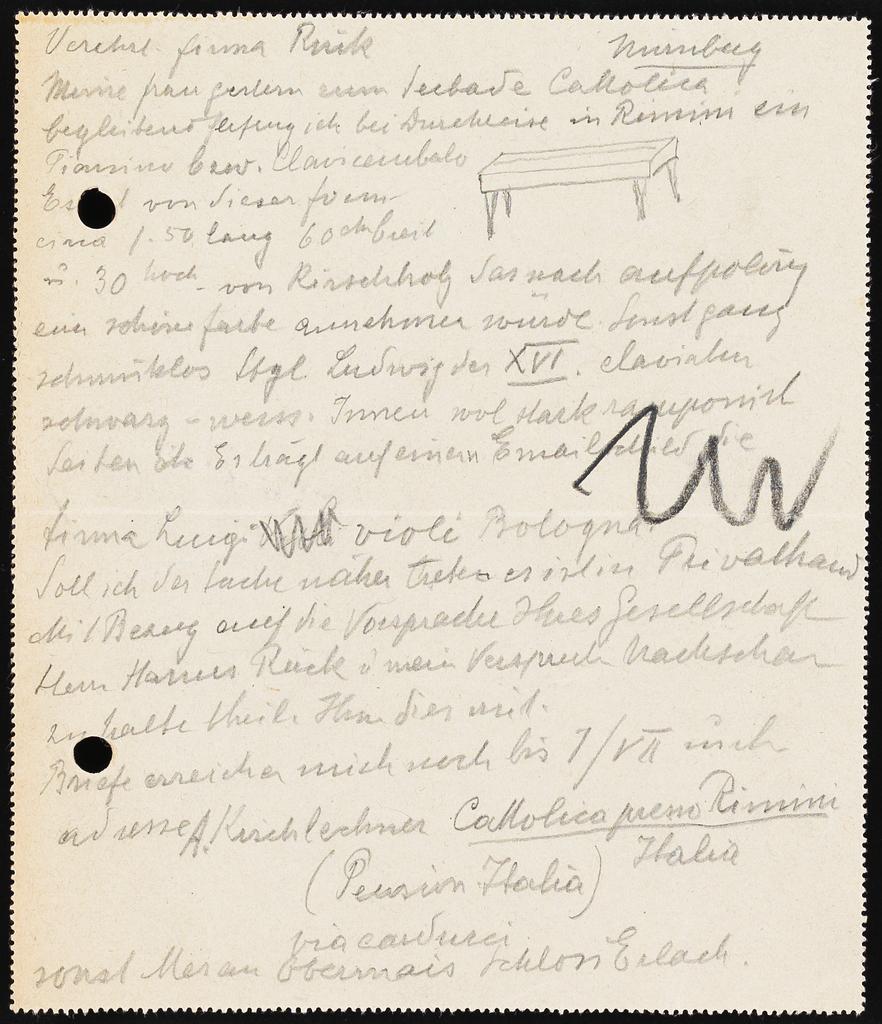 Verehrl. firma Rück Nürnberg
Meine frau gestern zum Seebade Cattolica
begleitend fing ich bei Durchreise in Rimini ein
Pianino bzw. Clavicembalo
Es ist von dieser form
circa 1.50 lang 60 cm breit
u. 30 hoch - von Kirschholz das nach aufpolirung
eine schöne farbe annehmen würde. Sonst ganz
schmuklos Styl Ludwig der XVI. claviatur
schwarz - weiss. Innen wol stark ramponirt
Seiten etc Es trägt auf einem Emailschied die
firma Luigi violi Bologna.
Soll ich der Sache näher treten es ist in Privathand
Mit Bezug auf die Vorsprache Ihres Gesellschaft
Herrn Hanns Rück u mein Versprech Nachschau
zu halten theil. Ihn dies mit.
Briefe erreichen mich noch bis 7/VII unt
adresse A. Kirchlechner Cattolica presso Rimini
Italia
(Pension Italia)
via carducci
sonst Meran Obermais Schloss Erlach.